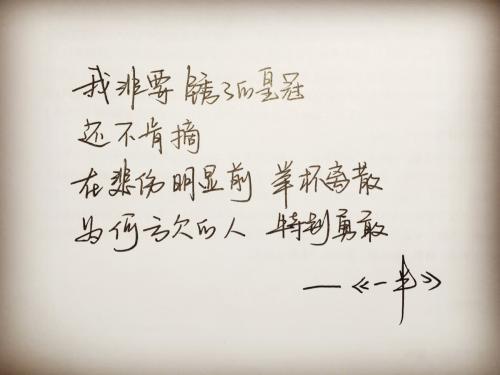 我非要 锈了的皇冠
还不肯摘
在悲伤明显前 举杯离散
为何亏欠的人 特别勇敢
——《一半》